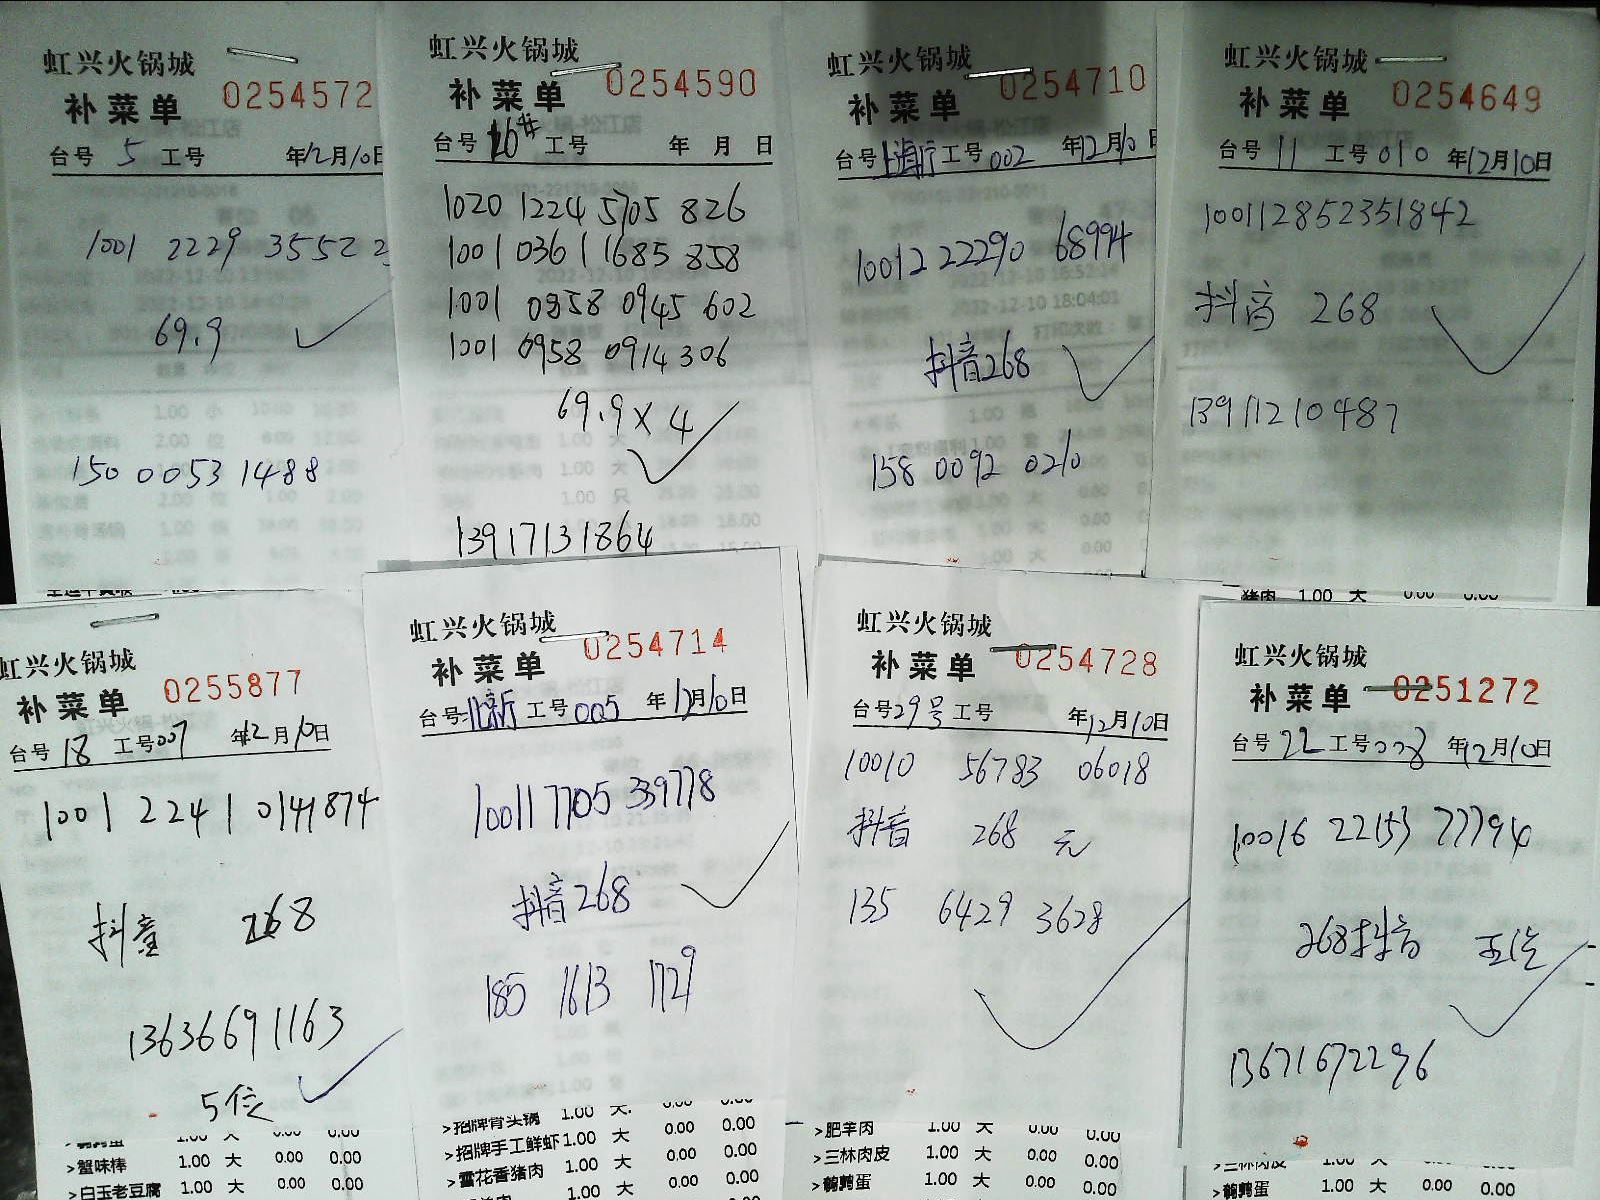 虹兴火锅城
补菜单 0254572
台号 5 工号 年12月10日
1001 2229 3552
69.9
150 0053 1488
虹兴火锅城
补菜单 0254590
台号 16# 工号 年 月 日
1020 1224 5705 826
1001 0361 1685 858
1001 0958 0945 602
1001 0958 0914 306
69.9×4
13917131864
虹兴火锅城
补菜单 0254710
台号 上海厅 工号 002 年12月10日
10012 22290 68994
抖音268
158 0092 0210
虹兴火锅城
补菜单 0254649
台号 11 工号 010 年12月10日
100112852351842
抖音 268
13911210487
猪肉 1.00 大 0.00 0.00
虹兴火锅城
补菜单 0255877
台号 18 工号 007 年12月10日
1001 2241 0141874
抖音 268
13636691163
5位
>蟹味棒 1.00 大 0.00 0.00
>白玉老豆腐 1.00 大 0.00 0.00
虹兴火锅城
补菜单 0254714
台号 北新 工号 005 年12月10日
10011 7705 339778
抖音268
185 1613 1729
>招牌骨头锅 1.00 大 0.00 0.00
>招牌手工鲜虾 1.00 大 0.00 0.00
>雪花香猪肉 1.00 大 0.00 0.00
1.00 大 0.00 0.00
虹兴火锅城
补菜单 0254728
台号 29号 工号 年12月10日
10010 56783 06018
抖音 268 元
135 6429 3628
>肥羊肉 1.00 大 0.00 0.00
>三林肉皮 1.00 大 0.00 0.00
>鹌鹑蛋 1.00 大 0.00 0.00
虹兴火锅城
补菜单 0251272
台号 22 工号 008 年12月10日
10016 22153 77794
268抖音 五位
13671672296
>三林肉皮 1.00 大 0.00 0.00
>鹌鹑蛋 1.00 大 0.00 0.00